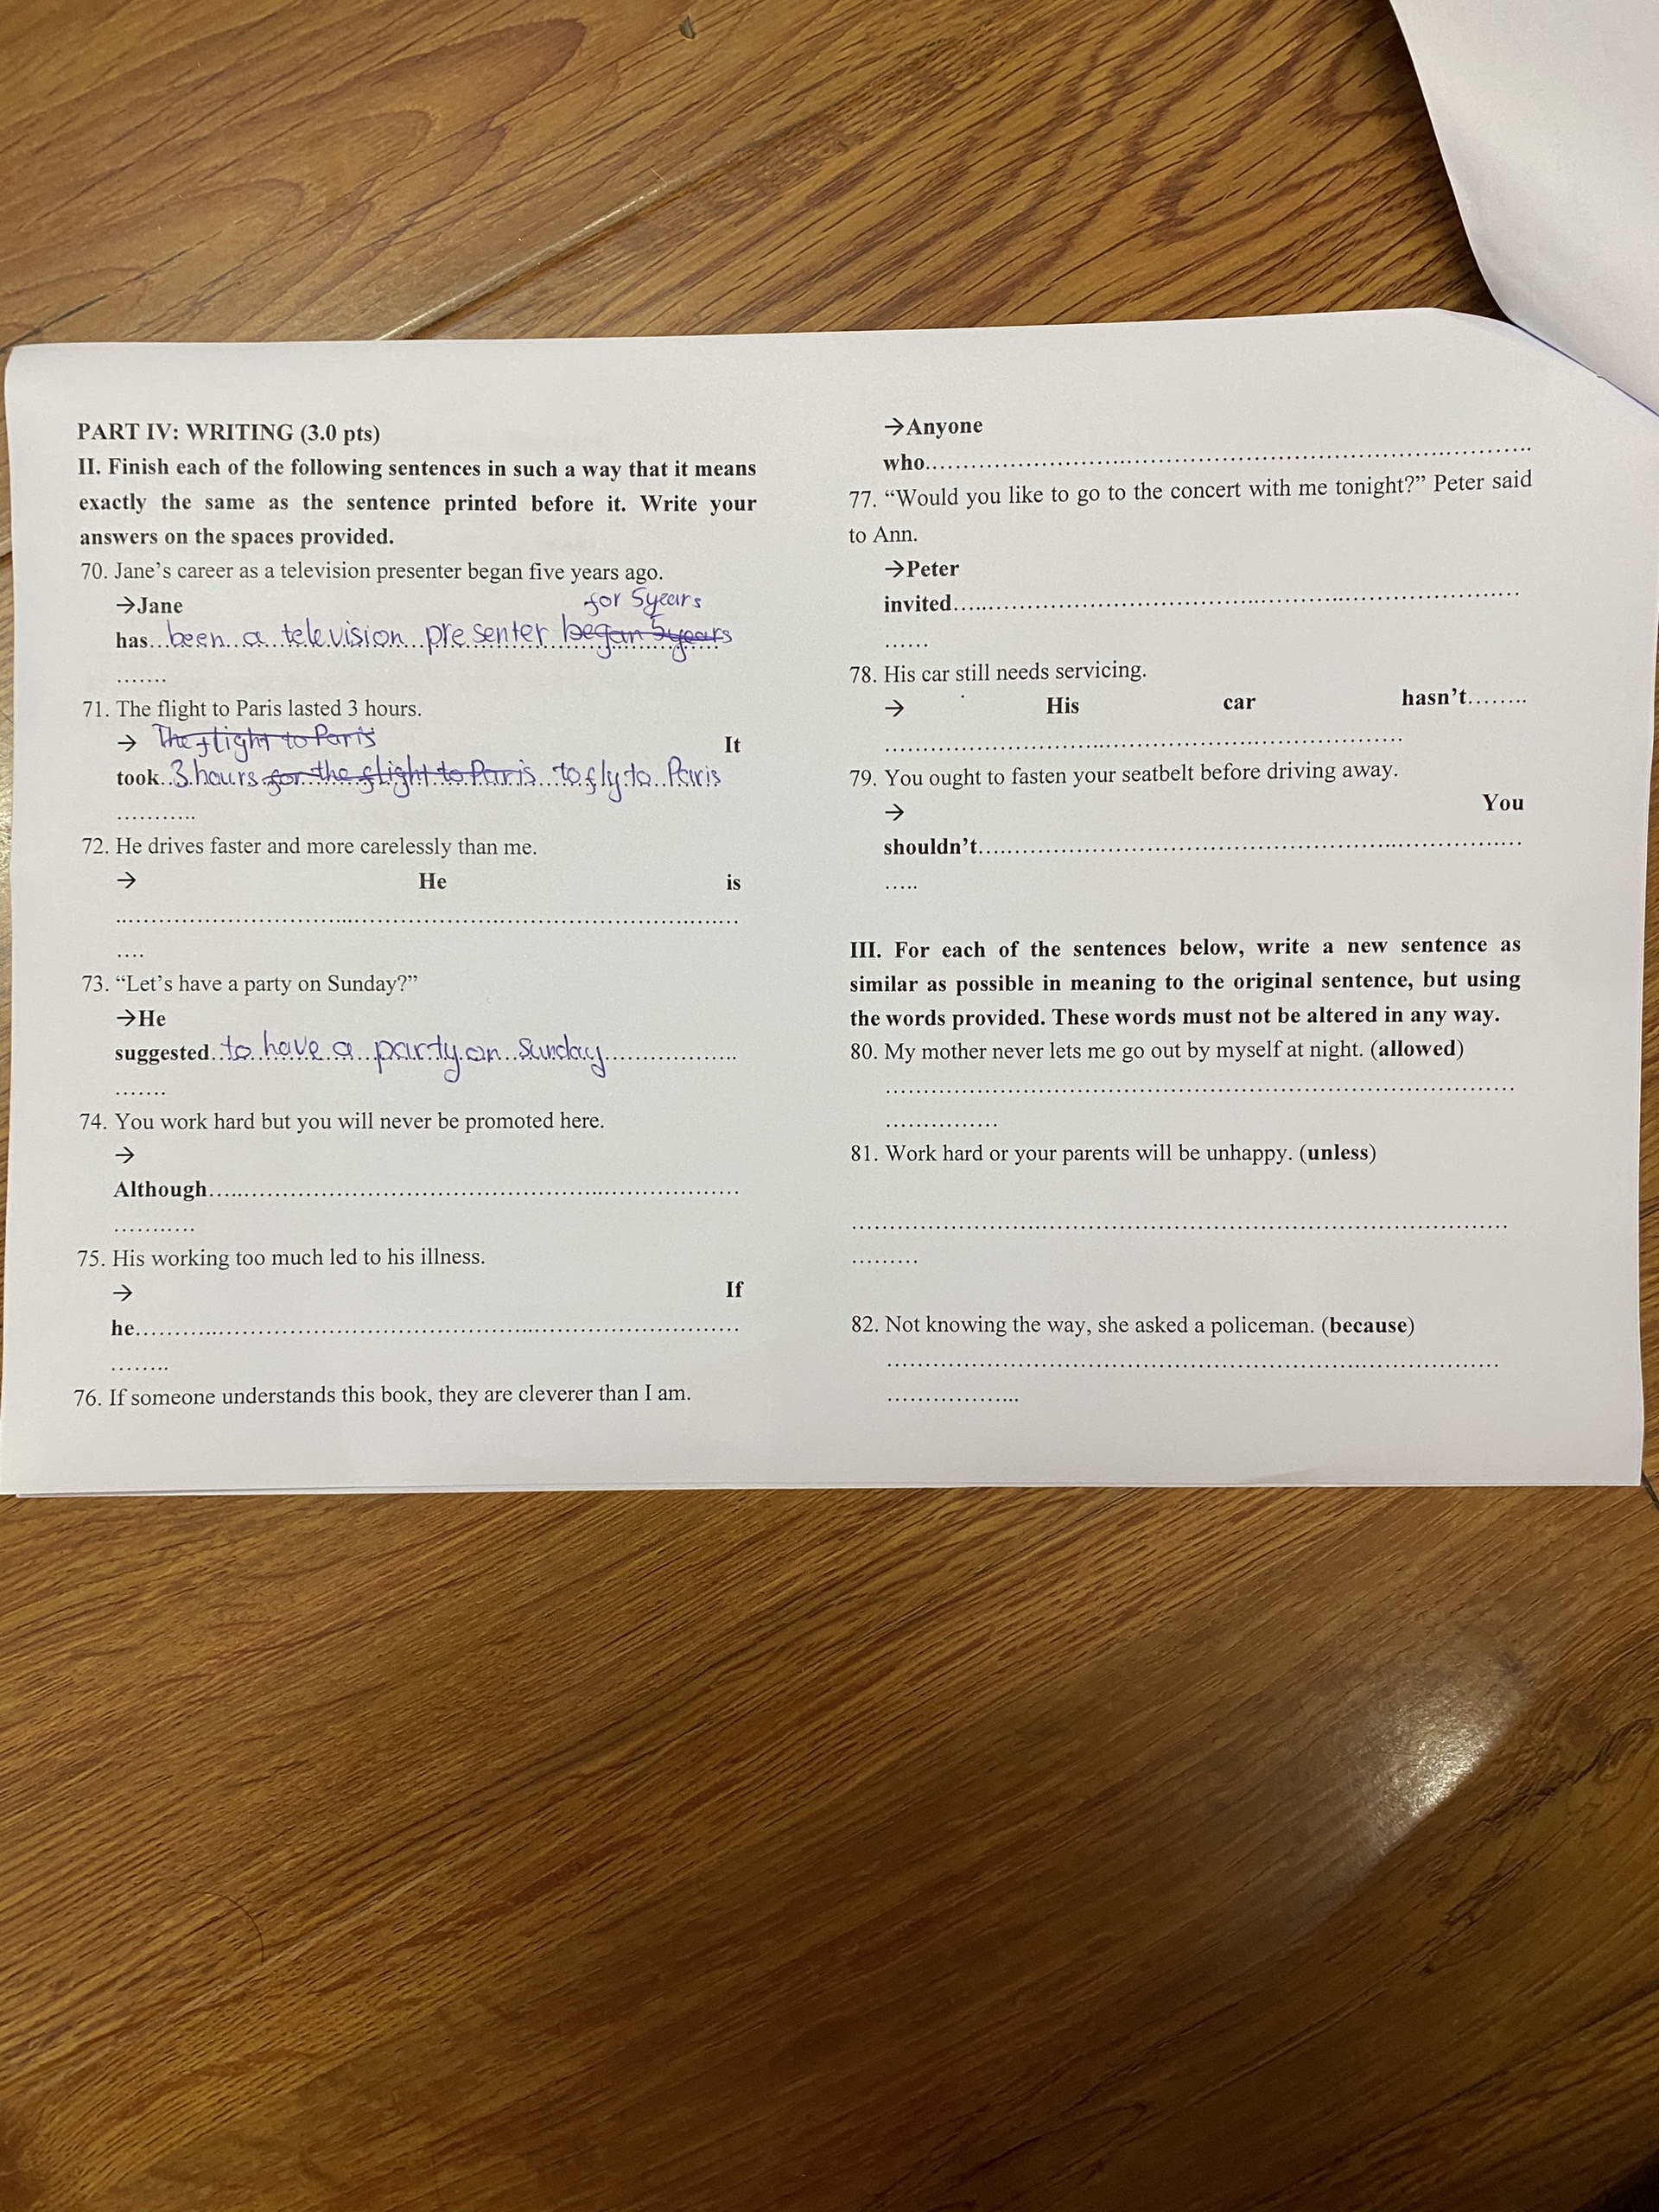 PART IV: WRITING (3.0 pts)
II. Finish each of the following sentences in such a way that it means
exactly the same as the sentence printed before it. Write your
answers on the spaces provided.
70. Jane's career as a television presenter began five years ago.
→Jane
for 5years
has...been a television presenter began 5years
.......
71. The flight to Paris lasted 3 hours.
→ The flight to Paris It
took..3 hours for the flight to Paris to fly to Paris
...........
72. He drives faster and more carelessly than me.
→ He is
................................................................
....
73. “Let's have a party on Sunday?”
→He
suggested..to have a party on Sunday....................
.......
74. You work hard but you will never be promoted here.
→
Although................................................................
...........
75. His working too much led to his illness.
→ If
he................................................................
........
76. If someone understands this book, they are cleverer than I am.
→Anyone
who................................................................
77. “Would you like to go to the concert with me tonight?” Peter said
to Ann.
→Peter
invited................................................................
......
78. His car still needs servicing.
→ His car hasn't........
................................................................
79. You ought to fasten your seatbelt before driving away.
→ You
shouldn't................................................................
.....
III. For each of the sentences below, write a new sentence as
similar as possible in meaning to the original sentence, but using
the words provided. These words must not be altered in any way.
80. My mother never lets me go out by myself at night. (allowed)
................................................................
...............
81. Work hard or your parents will be unhappy. (unless)
................................................................
.........
82. Not knowing the way, she asked a policeman. (because)
................................................................
..................